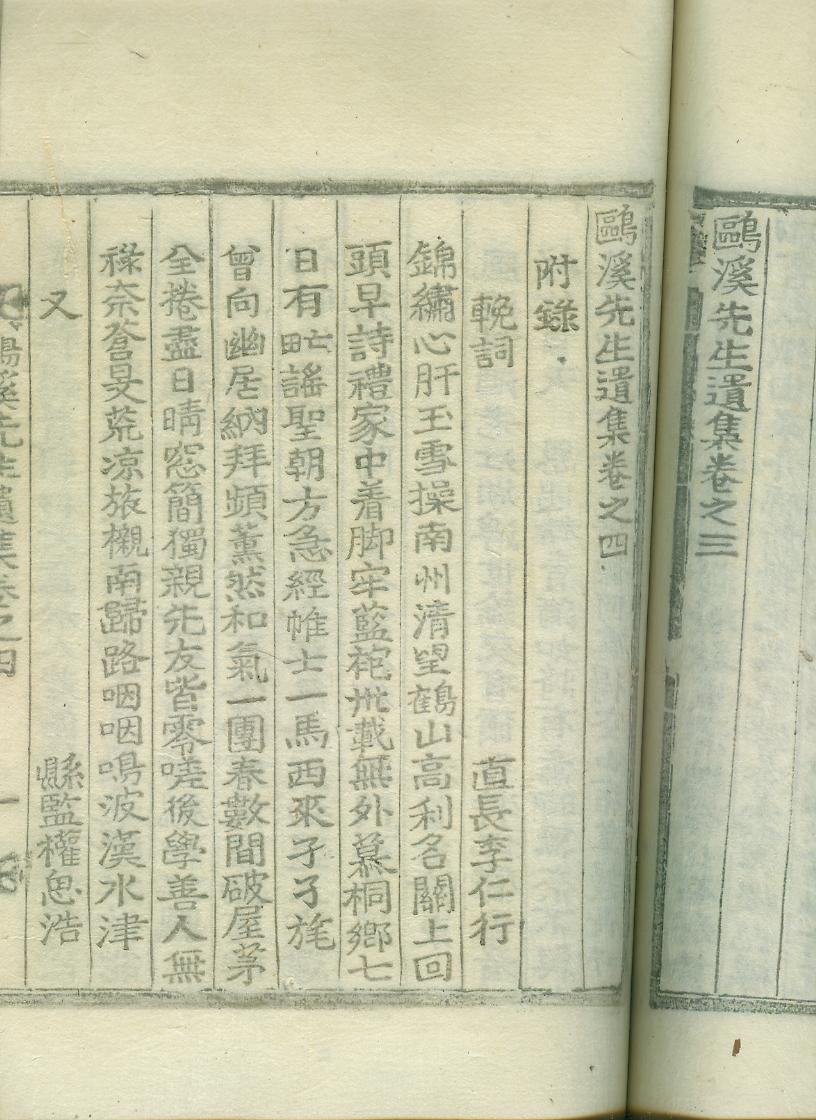 鷗溪先生遺集卷之三
鷗溪先生遺集卷之四
附錄
輓詞
直長李仁行
錦繡心肝玉雪操南州清望鶴山高利名關上回
頭早詩禮家中着脚牢藍袍卅載無外慕桐鄉七
日有䟦謠聖朝方急經帷士一馬西來孑孑旄
曾向幽居納拜頻薰然和氣一團春數間破屋茅
全捲盡日晴窓簡獨親先友皆零嗟後學善人無
祿奈蒼旻荒凉旅櫬南歸路咽咽鳴波漢水津
又
縣監權思浩
鷗溪先生遺集卷之四
一